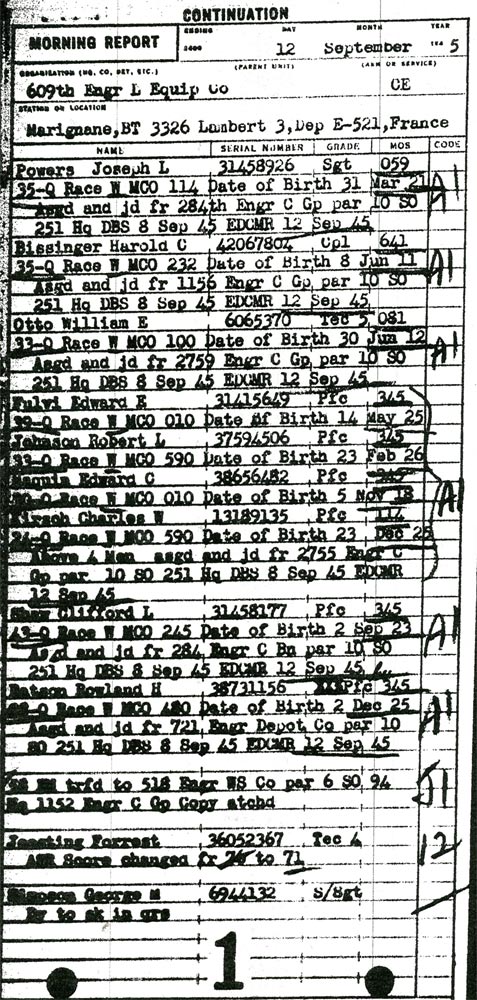 CONTINUATION
MORNING REPORT
ENDING 2400
DAY
MONTH
YEAR
12 September 194 5
ORGANIZATION (HQ, CO, DET, ETC.)
(PARENT UNIT)
(ARM OR SERVICE)
609th Engr L Equip Co CE
STATION OR LOCATION
Marignane,BT 3326 Lambert 3,Dep E-521,France
NAME SERIAL NUMBER GRADE MOS CODE
Powers Joseph L 31458926 Sgt 059
35-Q Race W MCO 114 Date of Birth 31 Mar 21 A1
Asgd and jd fr 284th Engr C Gp par 10 SO
251 Hq DBS 8 Sep 45 EDCMR 12 Sep 45
Bissinger Harold C 42067804 Cpl 641
35-Q Race W MCO 232 Date of Birth 8 Jun 11 A1
Asgd and jd fr 1156 Engr C Gp par 10 SO
251 Hq DBS 8 Sep 45 EDCMR 12 Sep 45
Otto William E 6065370 Tec 5 081
33-Q Race W MCO 100 Date of Birth 30 Jun 12 A1
Asgd and jd fr 2759 Engr C Gp par 10 SO
251 Hq DBS 8 Sep 45 EDCMR 12 Sep 45
Fulvi Edward E 31415649 Pfc 345
Race W MCO 010 Date of Birth 14 May 25
Johnson Robert L 37594506 Pfc 345
33-Q Race W MCO 590 Date of Birth 23 Feb 26
Edward C 38656482 Pfc 345
Race W MCO 010 Date of Birth 5 Nov 18 A1
Kirsch Charles W 13189135 Pfc 114
Race W MCO 590 Date of Birth 23 Dec 25
Above 4 Men asgd and jd fr 2755 Engr C
Gp par 10 SO 251 Hq DBS 8 Sep 45 EDCMR
12 Sep 45
Shaw Clifford L 31458177 Pfc 345
43-Q Race W MCO 245 Date of Birth 2 Sep 23 A1
Asgd and jd fr 284 Engr C Bn par 10 SO
251 Hq DBS 8 Sep 45 EDCMR 12 Sep 45
Batson Rowland H 38731156 XXXPfc 345
Race W MCO 420 Date of Birth 2 Dec 25 A1
Asgd and jd fr 721 Engr Depot Co par 10
SO 251 Hq DBS 8 Sep 45 EDCMR 12 Sep 45
EM trfd to 518 Engr WS Co par 6 SO 94 J1
Hq 1152 Engr C Gp Copy atchd
Forrest 36052367 Tec 4 12
ASR Score changed fr to 71
Simpson George M 6944132 S/Sgt
Dy to sk in qrs
1